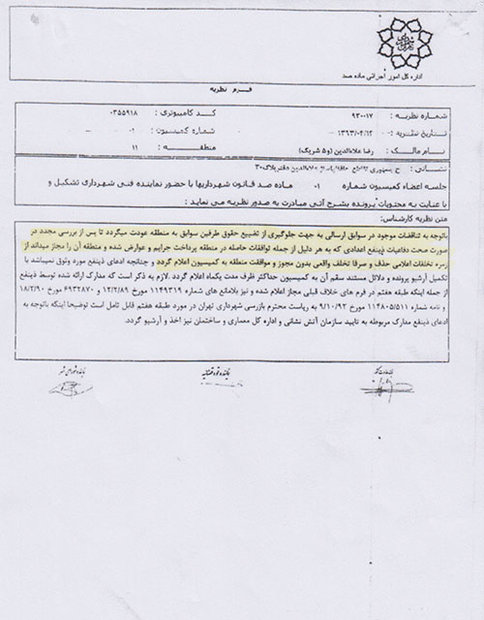 اداره کل امور اجرائی ماده صد
فرم نظریه
شماره نظریه : ۹۳۰۰۱۷
کد کامپیوتری : ۰۳۵۵۹۱۸
تاریخ نظریه : ۱۳۹۳/۰۴/۱۲
شماره کمیسیون : ۰۱
نام مالک : رضا علاءالدین (و۵ شریک)
منطقه : ۱۱
نشانی : خ جمهوری علاءالدین
جلسه اعضاء کمیسیون شماره ۰۱ ماده صد قانون شهرداریها با حضور نماینده فنی شهرداری تشکیل و
با عنایت به محتویات پرونده بشرح آتی مبادرت به صدور نظریه می نماید :
متن نظریه کارشناس:
باتوجه به تناقضات موجود در سوابق ارسالی به جهت جلوگیری از تضییع حقوق طرفین سوابق به منطقه عودت میگردد تا پس از بررسی مجدد در
صورت صحت دفاعیات ذینفع اعدادی که به هر دلیل از جمله توافقات حاصله در منطقه پرداخت جرایم و عوارض شده و منطقه آن را مجاز میداند از
زمره تخلفات اعلامی حذف و صرفا تخلف واقعی بدون مجوز و موافقت منطقه به کمیسیون اعلام گردد و چنانچه ادعای ذینفع مورد وثوق نمیباشد با
تکمیل آرشیو پرونده و دلائل مستند سقم آن به کمیسیون حداکثر ظرف مدت یکماه اعلام گردد. لازم به ذکر است که مدارک ارائه شده توسط ذینفع
از جمله اینکه طبقه هفتم در فرم های خلاف قبلی مجاز اعلام شده و نیز بلامانع های شماره ۱۱۴۹۳۱۹ مورخ ۱۲/۲/۸۹ و ۶۹۳۲۸۷۰ مورخ ۱۸/۲/۹۰
و نامه شماره ۱۱۴۸۰۵/۵۱۱ مورخ ۹/۱۰/۹۲ به ریاست محترم بازرسی شهرداری تهران در مورد طبقه هفتم قابل تامل است توضیحا اینکه باتوجه به
ادعای ذینفع مدارک مربوطه به تایید سازمان آتش نشانی و اداره کل معماری و ساختمان نیز اخذ و آرشیو گردد.
نماینده شورای شهر
نماینده قوه قضائیه
نماینده وزارت کشور